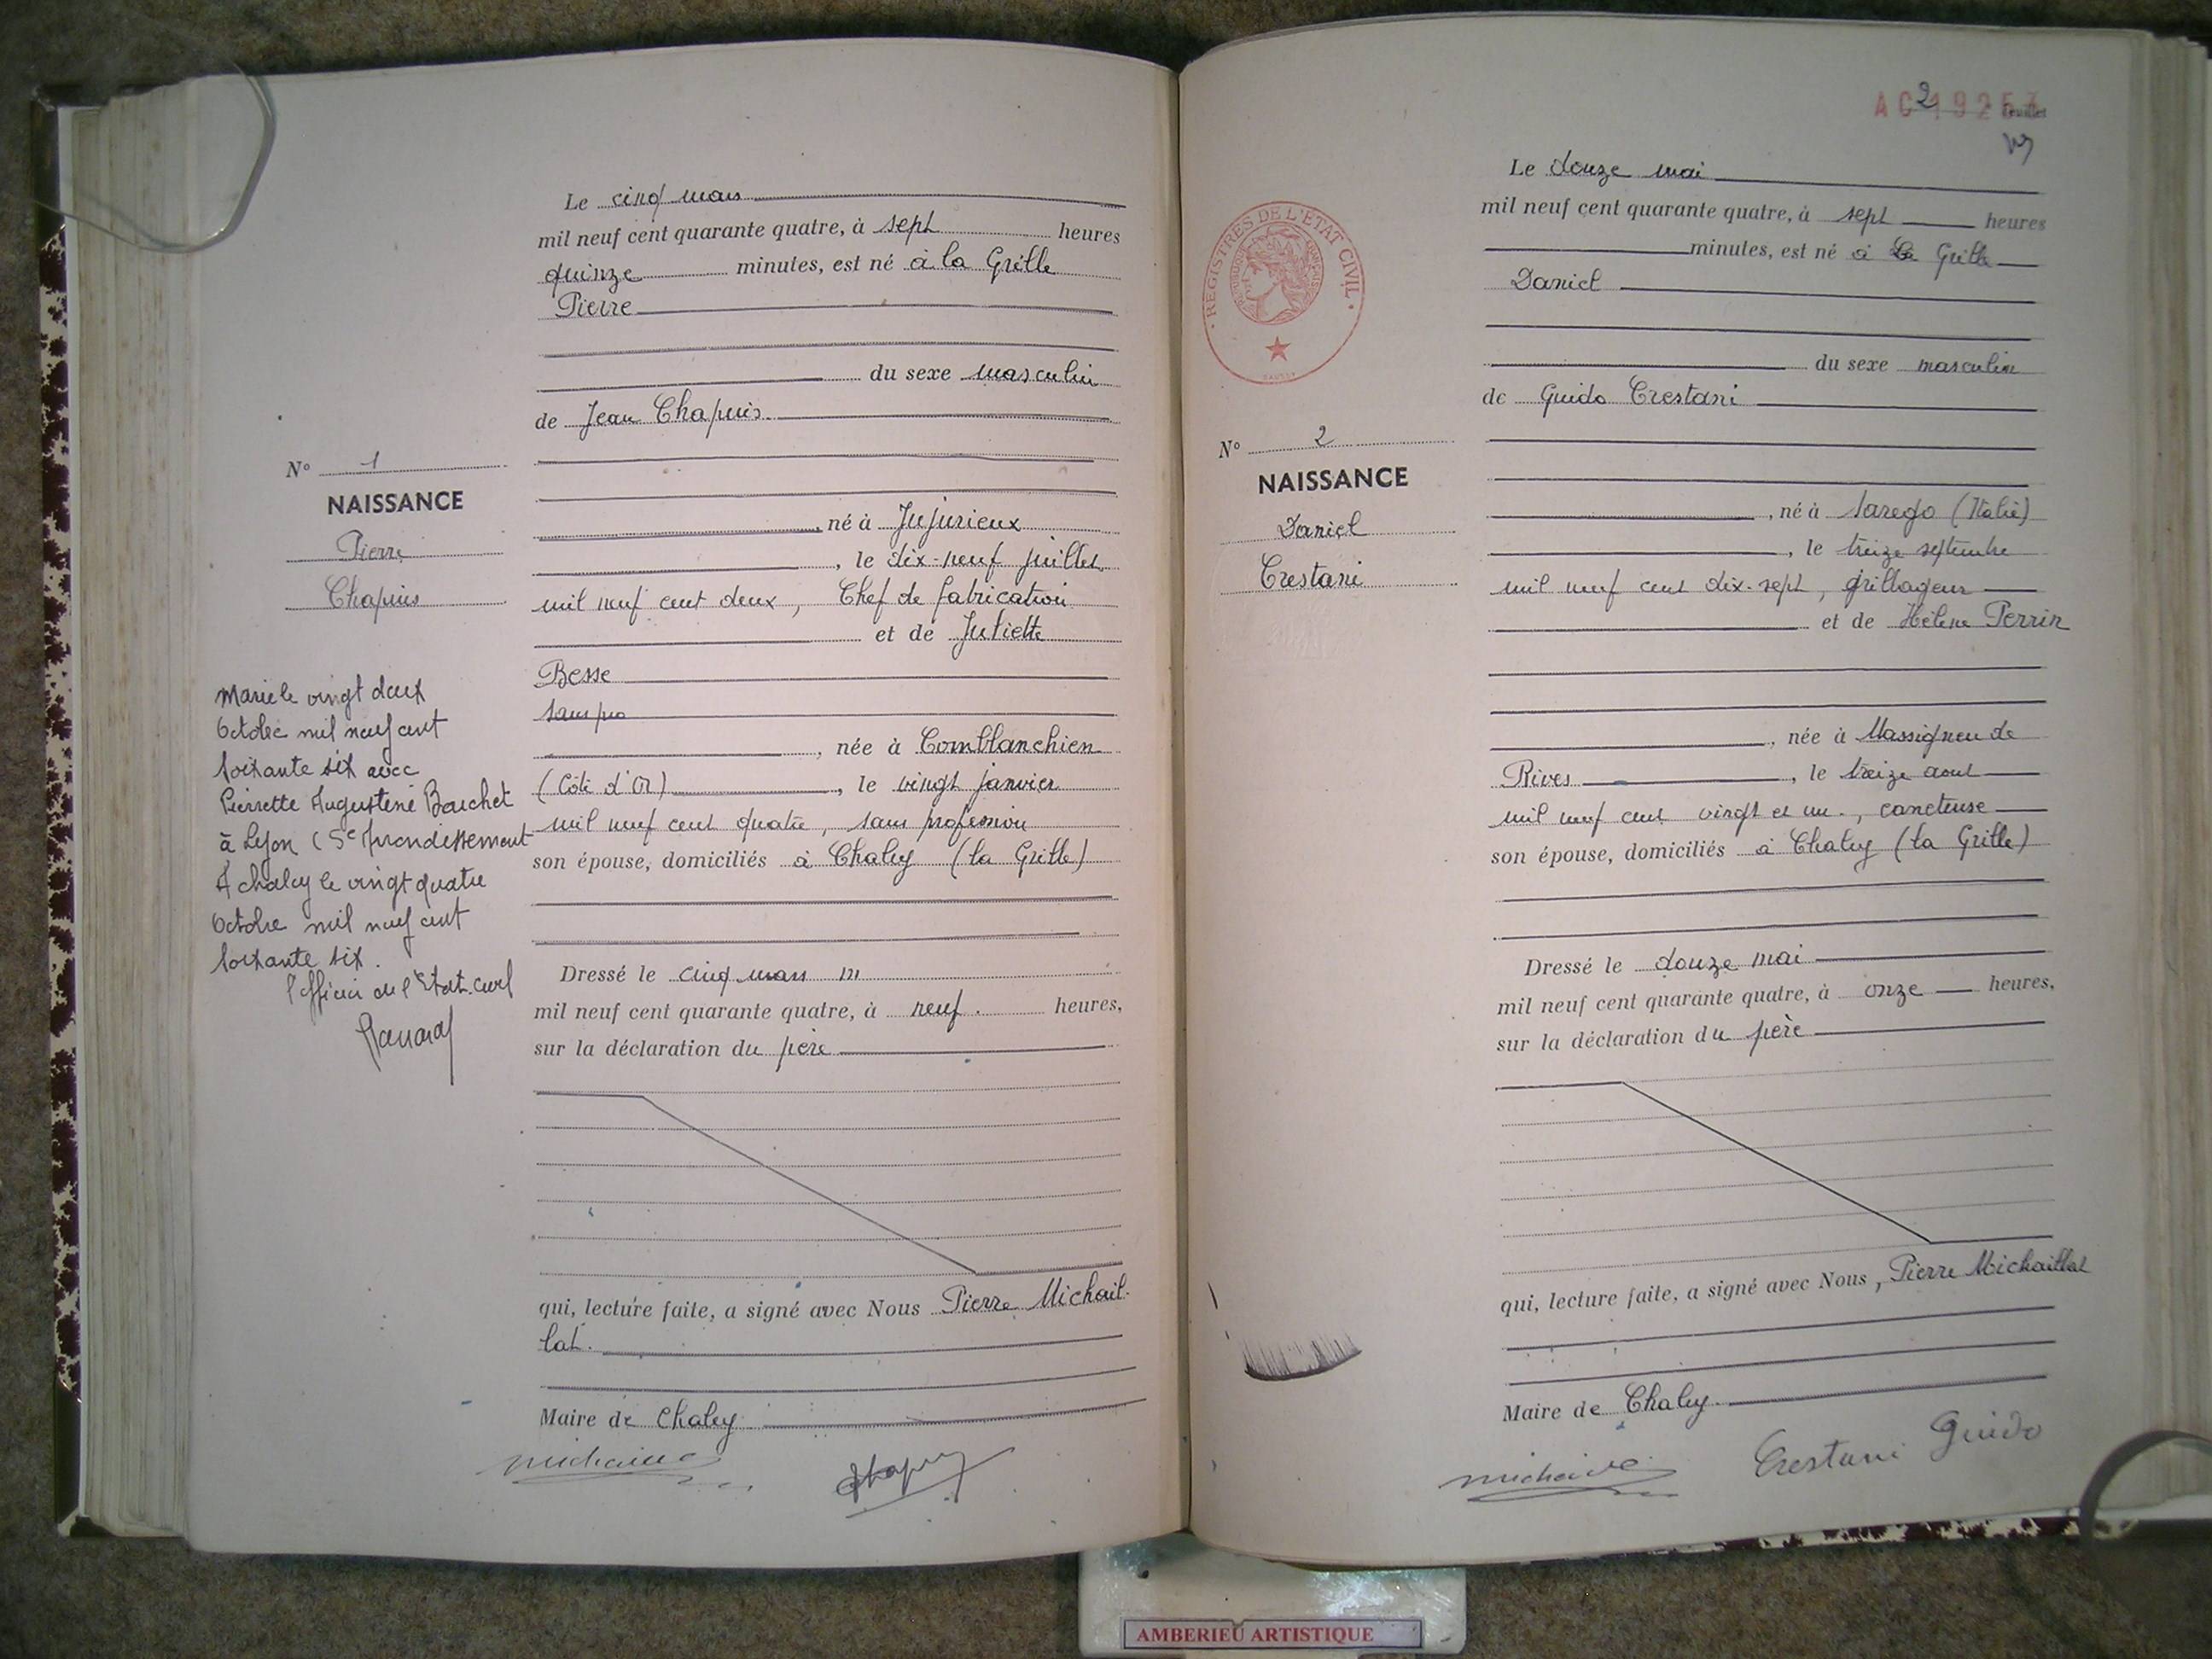 Le cinq mars
mil neuf cent quarante quatre, à sept heures
quinze minutes, est né à la Grille
Pierre
du sexe masculin
de Jean Chapuis
N° 1
NAISSANCE
Pierre
Chapuis
né à Jujurieux
, le dix-neuf juillet
mil neuf cent deux, Chef de fabrication
et de Juliette
Besse
sans pro
, née à Comblanchien
(Côte d'Or), le vingt janvier
mil neuf cent quatre, sans profession
son épouse, domiciliés à Chaley (la Grille)
Marié le vingt deux
Octobre mil neuf cent
soixante six avec
Pierrette Augustine Bauchet
à Lyon (5e Arrondissement
A chaley le vingt quatre
Octobre mil neuf cent
soixante six.
l'officier de l'Etat.civil
Dressé le cinq mars m
mil neuf cent quarante quatre, à neuf. heures,
sur la déclaration du père
qui, lecture faite, a signé avec Nous Pierre Michail-
lat.
Maire de Chaley
Chapuis
AC 19257
2 Feuillet
Le douze mai
mil neuf cent quarante quatre, à sept heures
minutes, est né à La Grille
Daniel
REGISTRES DE L'ETAT CIVIL
du sexe masculin
de Guido Crestani
N° 2
NAISSANCE
Daniel
Crestani
, né à Sarego (Italie)
, le treize septembre
mil neuf cent dix-sept, grillageur
et de Hélène Perrin
, née à Massigneu de
Rives, le treize aout
mil neuf cent vingt et un., caneteuse
son épouse, domiciliés à Chaley (la Grille)
Dressé le douze mai
mil neuf cent quarante quatre, à onze heures,
sur la déclaration du père
qui, lecture faite, a signé avec Nous, Pierre Michaillat
Maire de Chaley.
Crestani Guido
AMBERIEU ARTISTIQUE